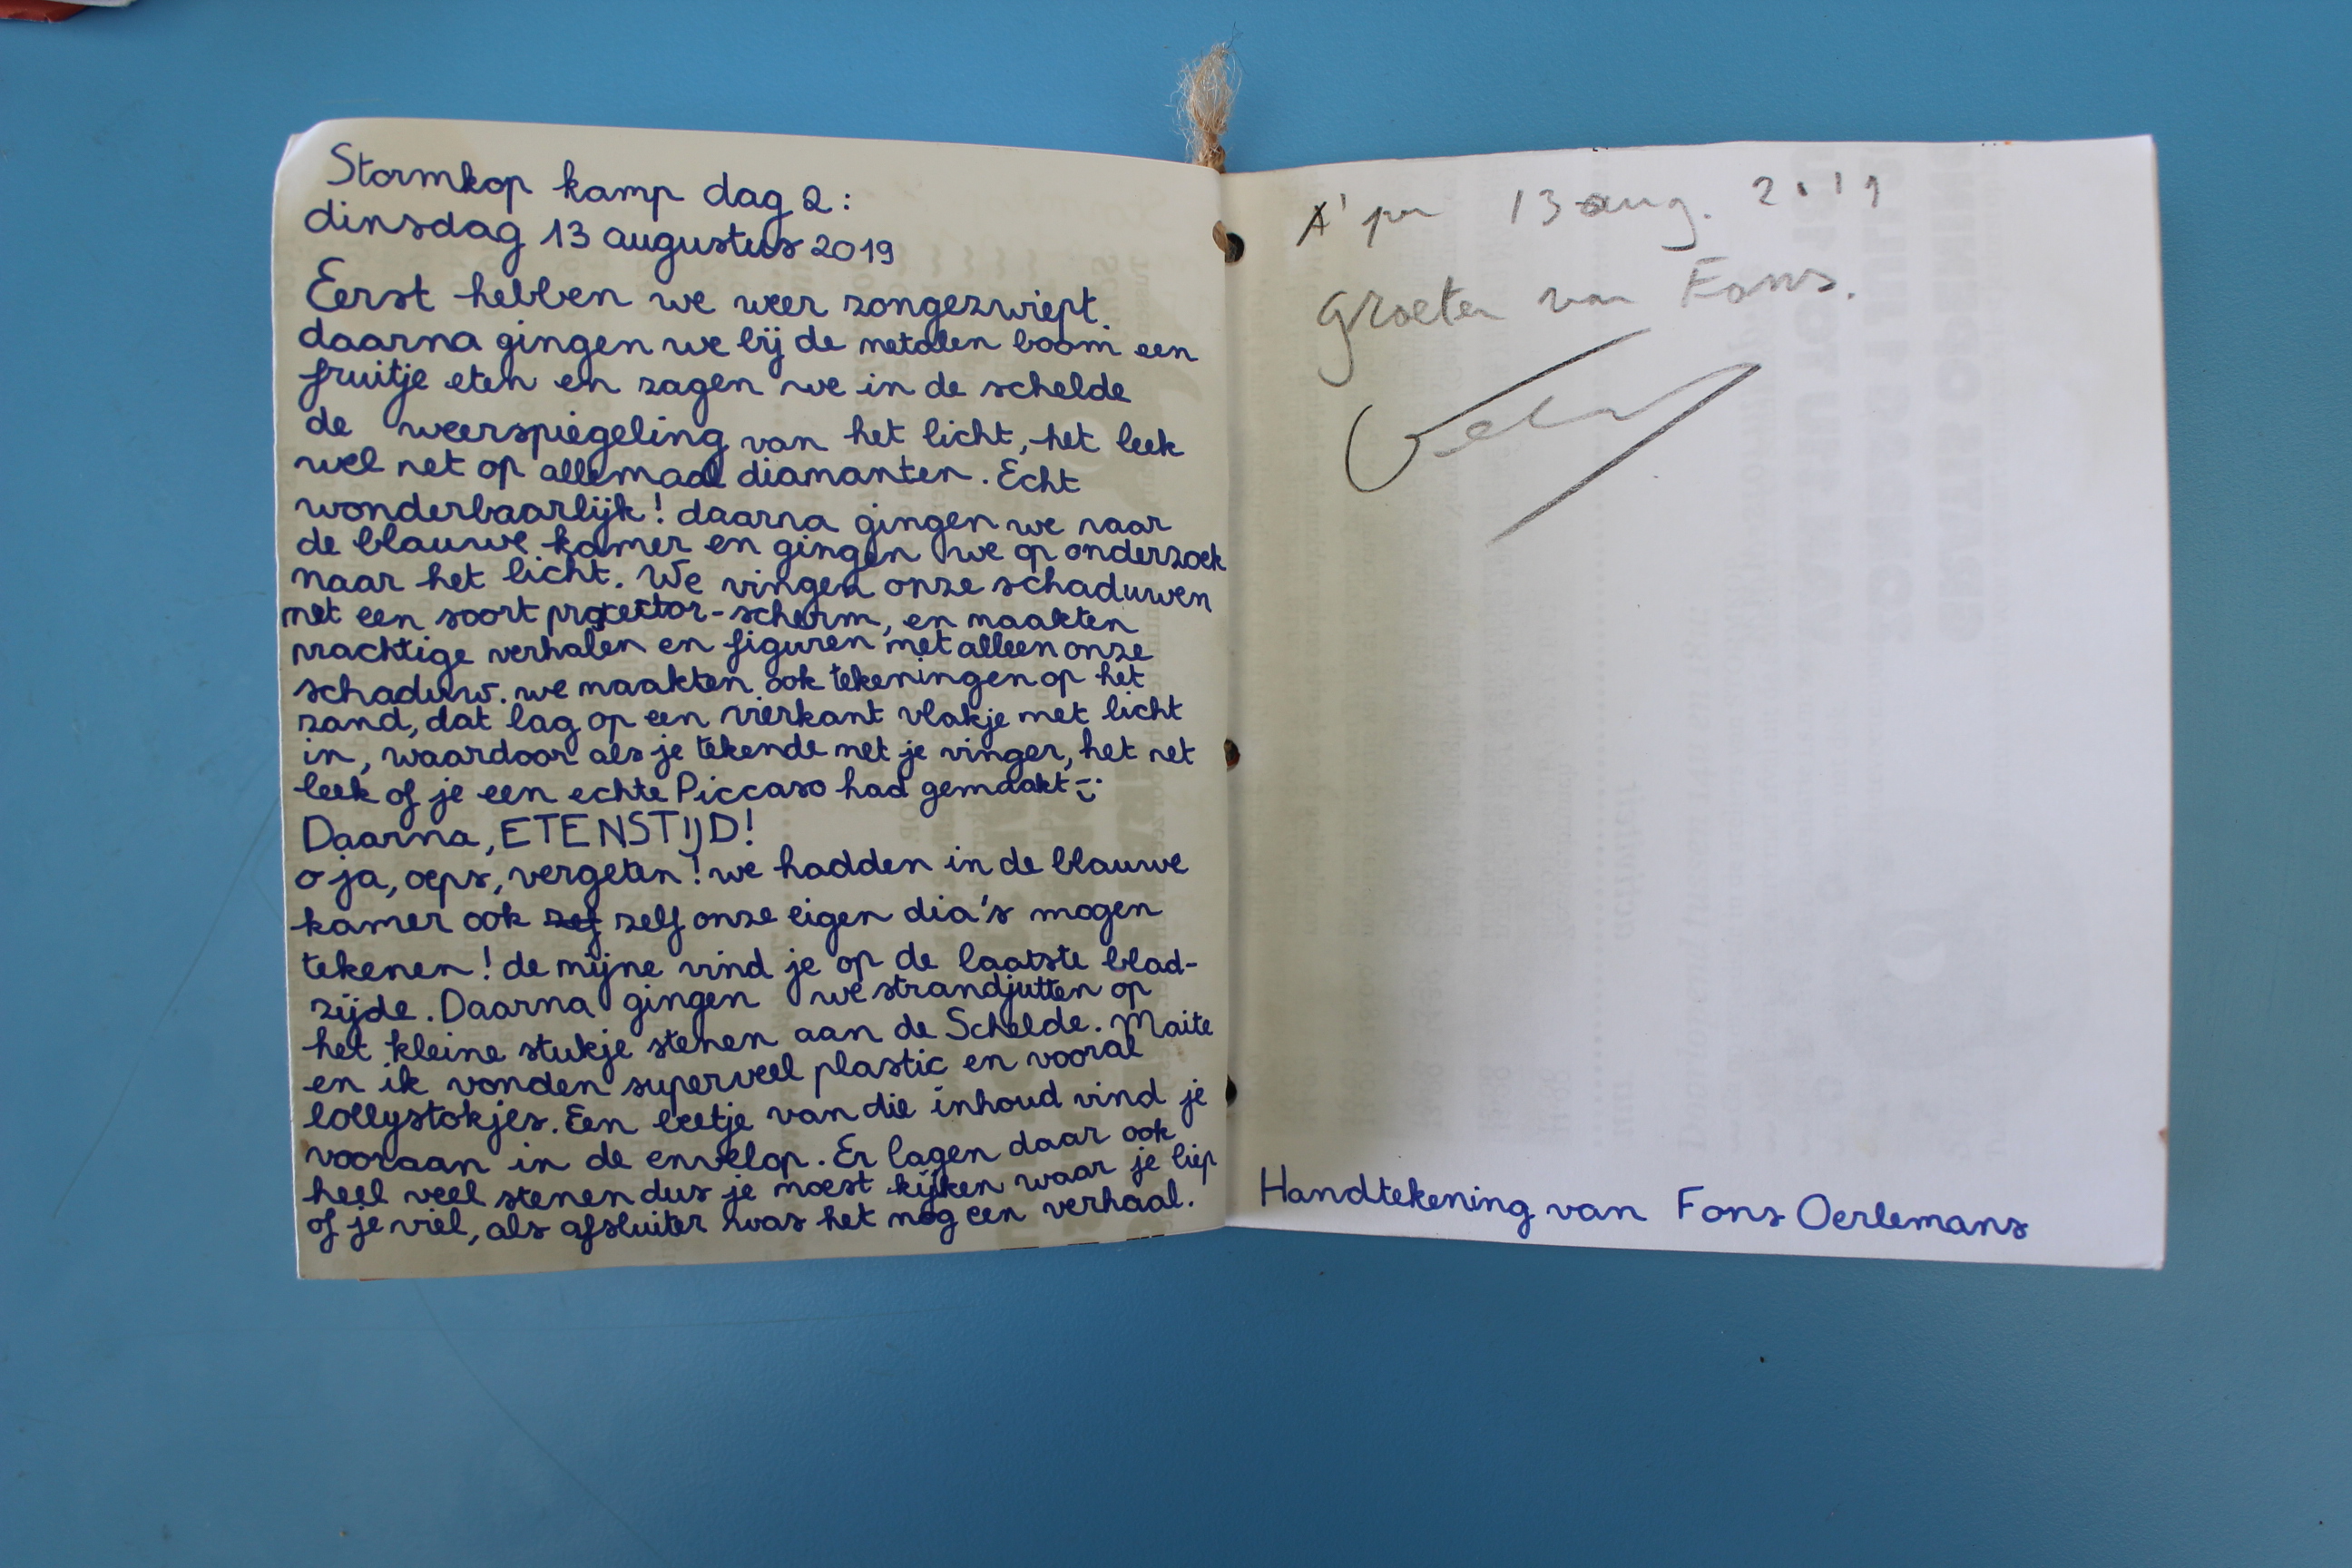 Stormkop kamp dag 2:
dinsdag 13 augustus 2019
Eerst hebben we weer zongezwiept.
daarna gingen we bij de metalen boom een
fruitje eten en zagen we in de schelde
de weerspiegeling van het licht, het leek
wel net op allemaal diamanten. Echt
wonderbaarlijk! daarna gingen we naar
de blauwe kamer en gingen we op onderzoek
naar het licht. We vingen onze schaduwen
met een soort projector-scherm, en maakten
prachtige verhalen en figuren met alleen onze
schaduw. we maakten ook tekeningen op het
zand, dat lag op een vierkant vlakje met licht
in, waardoor als je tekende met je vinger, het net
leek of je een echte Piccaso had gemaakt :)
Daarna, ETENSTIJD!
o ja, oeps, vergeten! we hadden in de blauwe
kamer ook zelf onze eigen dia's mogen
tekenen! de mijne vind je op de laatste blad-
zijde. Daarna gingen we strandjutten op
het kleine stukje stenen aan de Schelde. Maite
en ik vonden superveel plastic en vooral
lollystokjes. Een beetje van die inhoud vind je
vooraan in de envelop. Er lagen daar ook
heel veel stenen dus je moest kijken waar je liep
of je viel, als afsluiter was het nog een verhaal.
A'pen 13 aug. 2019
groeten van Fons.
Handtekening van Fons Oerlemans